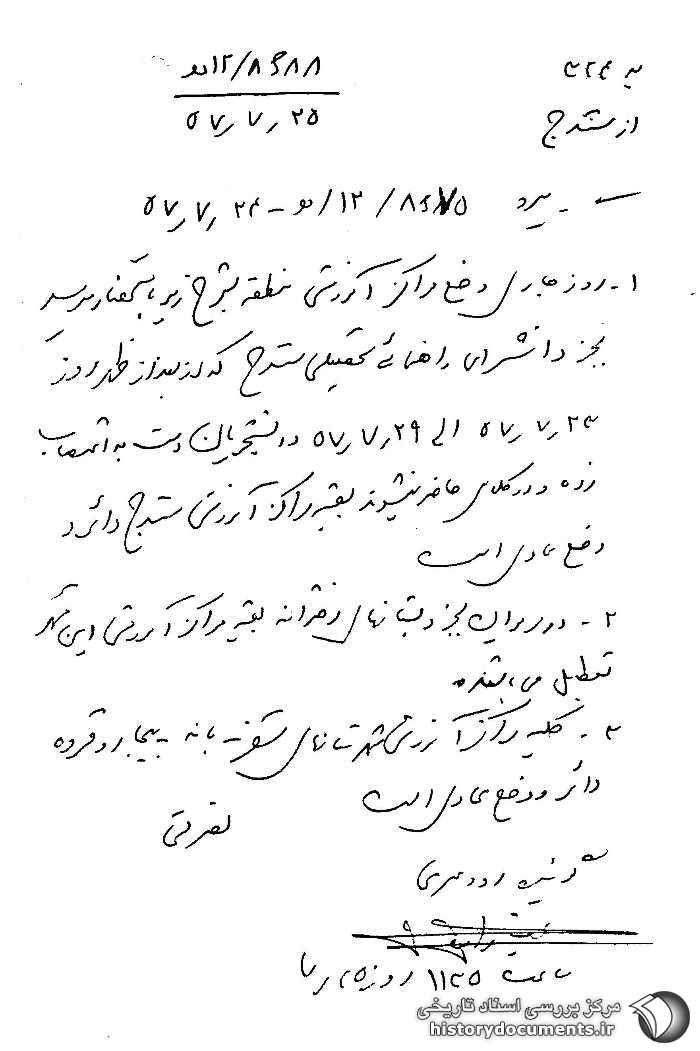 به ۳۲۴ ۱۲/۸۶۸۸ﻫ دو
از سنندج ۵۷٫۷٫۲۵
پیرو ۸۶۷۵/ ۱۲/ﻫ دو - ۵۷٫۷٫۲۴
۱- روز جاری وضع مراکز آموزشی منطقه بشرح زیر باستحضار میرسد
بجز دانشسرای راهنمائی تحصیلی سنندج که از بعد از ظهر روز
۵۷٫۷٫۲۳ الی ۵۷٫۷٫۲۹ دانشجویان دست به اعتصاب
زده و در کلاس حاضر نمیشوند بقیه مراکز آموزشی سنندج دائر و
وضع عادی است
۲- در مریوان بجز دبستانهای دخترانه بقیه مراکز آموزشی این شهر
تعطیل می باشند.
۳- کلیه مراکز آموزشی شهرستانهای سقز - بانه - بیجار و قروه
دائر و وضع عادی است
نصرتی
گوینده رودسری
گیرنده
ساعت ۱۱۳۵ روز ۲۵٫۷
مرکز بررسی اسناد تاریخی
historydocuments.ir